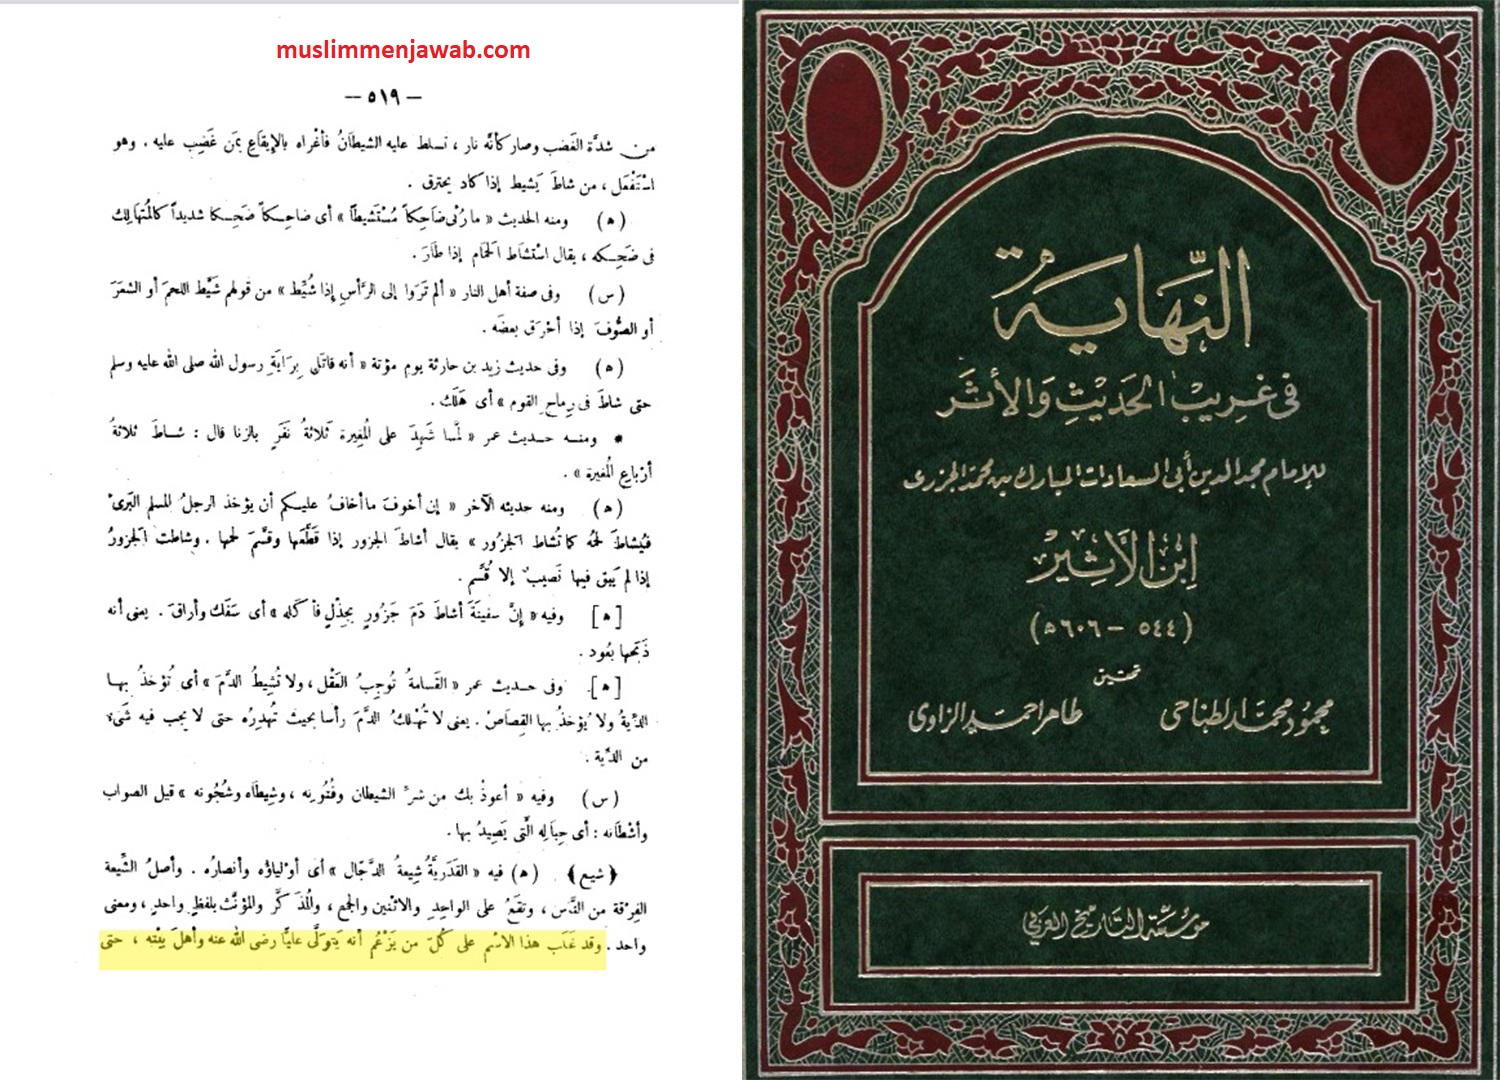 muslimmenjawab.com
— ٥١٩ —
من شدَّة الغَضب وصار كأنَّه نار ، تسلط عليه الشيطانُ فأغْراه بالإيقاعِ بمَن غَضِب عليه . وهو
اسْتَفْعَل ، من شاطَ يَشيط إذا كاد يحترق .
(ﻫ) ومنه الحديث « ما رُئى ضَاحِكاً مُسْتَشيطاً » أى ضاحِكاً ضَحِكا شديداً كالمُتَهالِك
فى ضَحِكه ، يقال اسْتشاط الحَمام إذا طَارَ .
(س) وفى صفة أهل النار « ألم تَرَوا إلى الرَّأسِ إذا شُيِّط » من قولهم شَيَّط اللحمَ أو الشعَرَ
أو الصُّوفَ إذا أحْرَق بعضَه .
(ﻫ) وفى حديث زيد بن حارثة يوم مؤتة « أنه قاتَل بِرَايَةِ رسول الله صلى الله عليه وسلم
حتى شاطَ فى رِماحِ القوم » أى هَلَك .
• ومنه حديث عمر « لمَّا شَهِدَ على المُغِيرة ثَلاثةُ نَفَرٍ بالزنا قال : شاطَ ثلاثةُ
أرْباعِ المُغيرة » .
(ﻫ) ومنه حديثه الآخر « إن أخوفَ ما أخافُ عليكم أن يؤخذ الرجلُ المسلم البَرىءُ
فيُشاطَ لحْمُه كما تُشاط الجزُور » يقال أشاطَ الجزور إذا قَطَّعَها وقَسَّمَ لحمَها . وشاطت الجزورُ
إذا لم يَبق فيها نَصيبٌ إلا قُسِّم .
[ﻫ] وفيه « إنَّ سفينَةَ أشاطَ دَمَ جَزُورٍ بجِذْلٍ فأكَله » أى سَفَك وأراقَ . يعنى أنه
ذَبَحها بعُود .
[ﻫ] وفى حديث عمر « القَسامةُ تُوجِبُ العَقْل ، ولا تُشِيطُ الدَّمَ » أى تُؤخذُ بها
الدِّيةُ ولا يُؤخذُ بها القِصاصُ . يعنى لا تُهْلكُ الدَّمَ رأسا بحيث تُهدِرُه حتى لا يجب فيه شىء
من الدِّية .
(س) وفيه « أعوذُ بك من شرِّ الشيطان وفُتُونِه ، وشِيطَاه وشُجُونه » قيل الصواب
وأشْطَانه : أى حِبَالِه الَّتى يَصِيدُ بها .
﴿ شيع ﴾ (ﻫ) فيه « القَدَريَّةُ شِيعةُ الدَّجّال » أى أوْلياؤه وأنصارُه . وأصلُ الشِّيعة
الفِرْقة من النَّاس ، وتقَعُ على الواحِدِ والاثنين والجمع ، والمُذَكَّر والمؤنَّث بلفظٍ واحدٍ ، ومعنى
واحد . وقد غَلَب هذا الاسْم على كُلّ من يَزْعُم أنه يَتَولَّى عليًّا رضى الله عنه وأهلَ بيْته ، حتى
النِّهَاية
فى غريب الحديث والأثَر
للإمام مجد الدين أبى السعادات المبارك بن محمد الجزرى
ابن الأثير
(٥٤٤ - ٦٠٦ﻫ)
تحقيق
محمود محمد الطناحى طاهر احمد الزاوى
مؤسسة التاريخ العربي